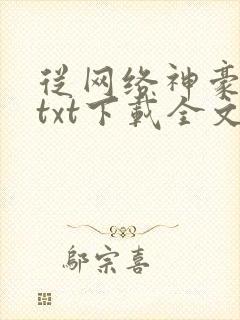 從网络神豪
txt下載全文
鄔宗喜